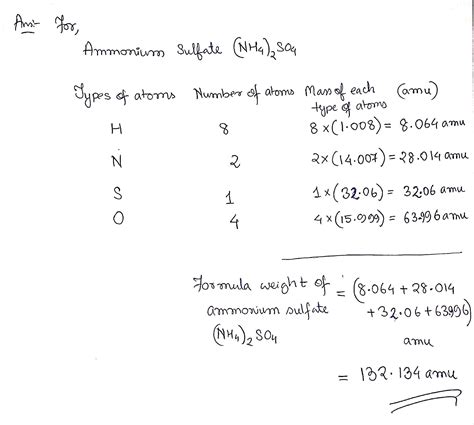 Ans- For,
Ammonium Sulfate (NH4)2SO4
Types of atoms Number of atoms Mass of each type of atoms (amu)
H 8 8×(1.008) = 8.064 amu
N 2 2×(14.007) = 28.014 amu
S 1 1×(32.06) = 32.06 amu
O 4 4×(15.999) = 63.996 amu
Formula weight of ammonium sulfate (NH4)2SO4 = (8.064 + 28.014
+32.06+63.996)
amu
= 132.134 amu